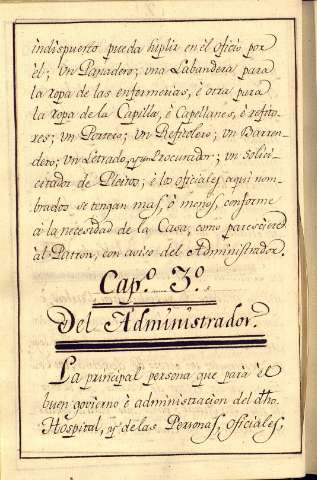 indispuesto pueda suplir en el oficio por
èl; Un Panadero; una Labandera para
la ropa de las enfermerias, è otra para
la ropa de la Capilla, è Capellanes, è refito-
res; un Portero; Un Refitolero; un Barren-
dero; Un Letrado, y un Procurador; un solici-
citador de Pleitos; è los oficiales aqui nom-
brados se tengan mas, ò menos, conforme
à la necesidad de la Casa, como pareciere
al Patron, con aviso del Administrador.
Cap.º 3.º
Del Administrador.
La principal persona que para el
buen govierno è administracion del dho
Hospital, y de las Personas, Oficiales,